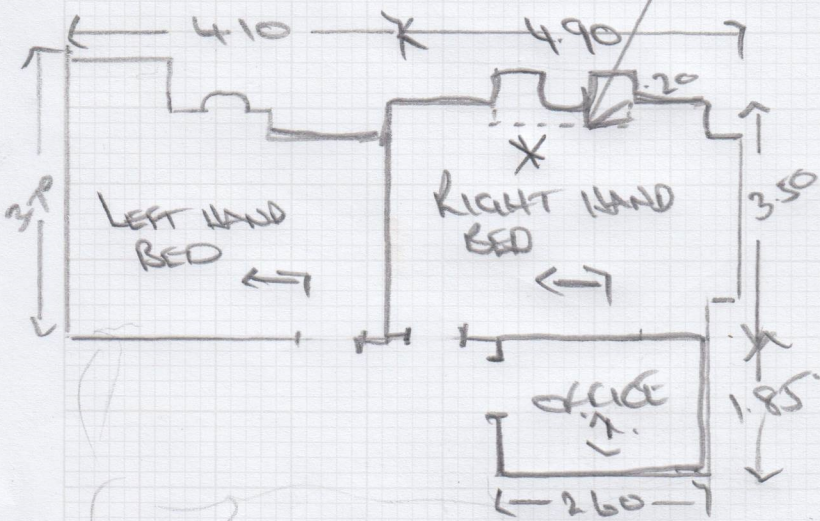 4.10
4.90
.20
LEFT HAND
BED
RIGHT HAND
BED
3.50
OFFICE
1.85
2.60